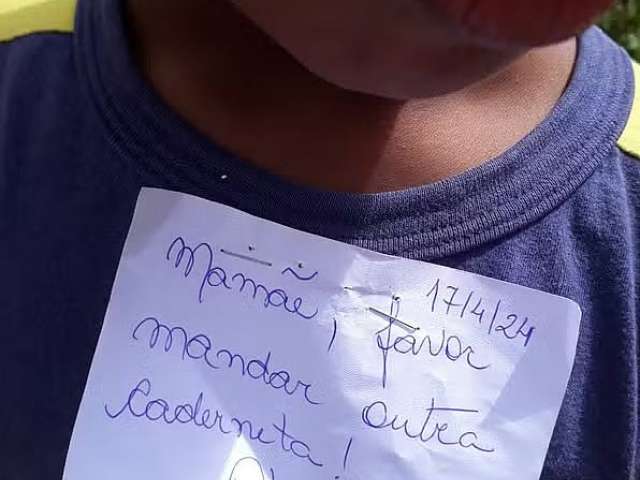 17/4/24
Mamãe, favor
mandar outra
caderneta!